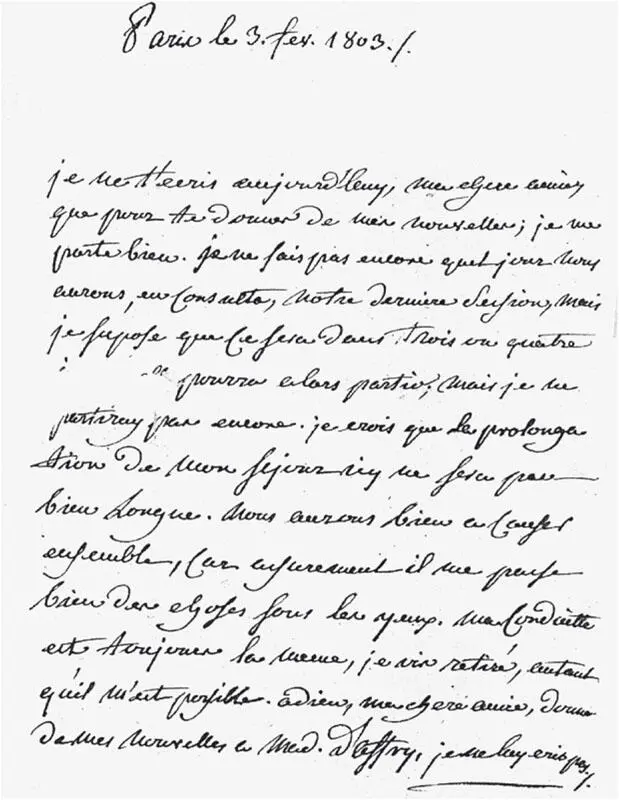 Paris le 3. fev. 1803./.
je ne t'ecris aujourd'huy, ma chere amie,
que pour te donner de mes nouvelles; je me
porte bien. je ne sais pas encore quel jour nous
aurons, en Consulta, notre derniere Session, mais
je supose que Ce sera dans trois ou quatre
pourra alors partir; mais je ne
partiray pas encore. je crois que la prolonga
tion de mon sejour icy ne sera pas
bien Longue. Nous aurons bien a Causer
ensemble, Car assurement il me passe
bien des choses sous les yeux. ma Conduitte
est toujours la meme, je vis retiré, autant
qu'il m'est possible. adieu, ma chere amie, donne
de mes nouvelles a Mad. d'affry, je ne luy ecris pas./.